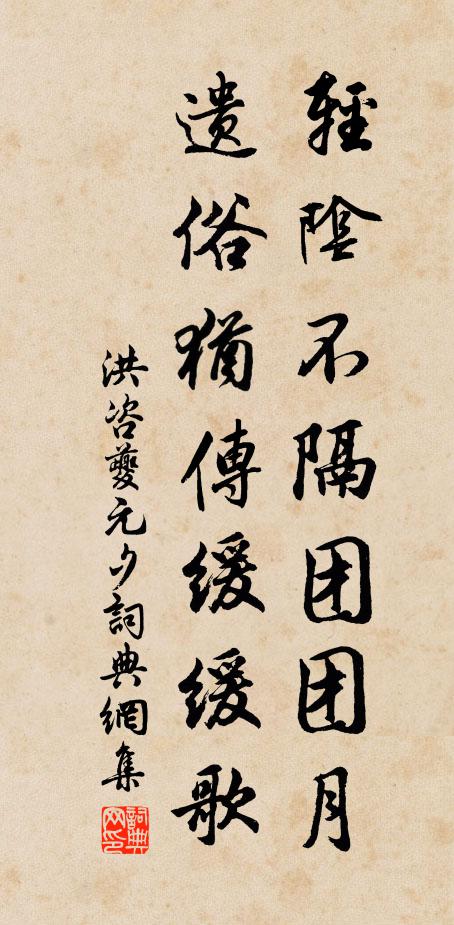 輕陰不隔团团月
遗俗猶傳缓缓歌
洪咨夔元夕詞典網集
詞典网印